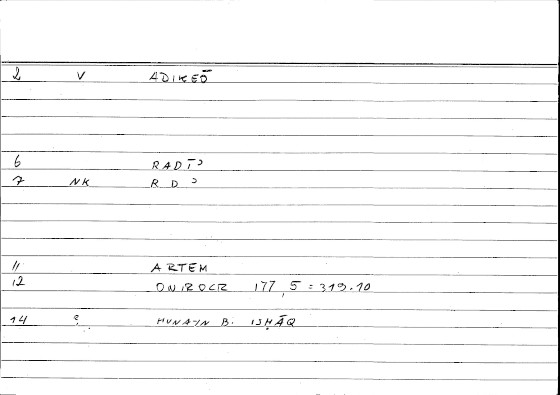 2 V ADIKEŌ
6 RADĪʾ
7 NK R D ʾ
11 ARTEM
12 ONIROCR 177,5 = 319.10
14 ? ḤUNAYN B. ISḤĀQ